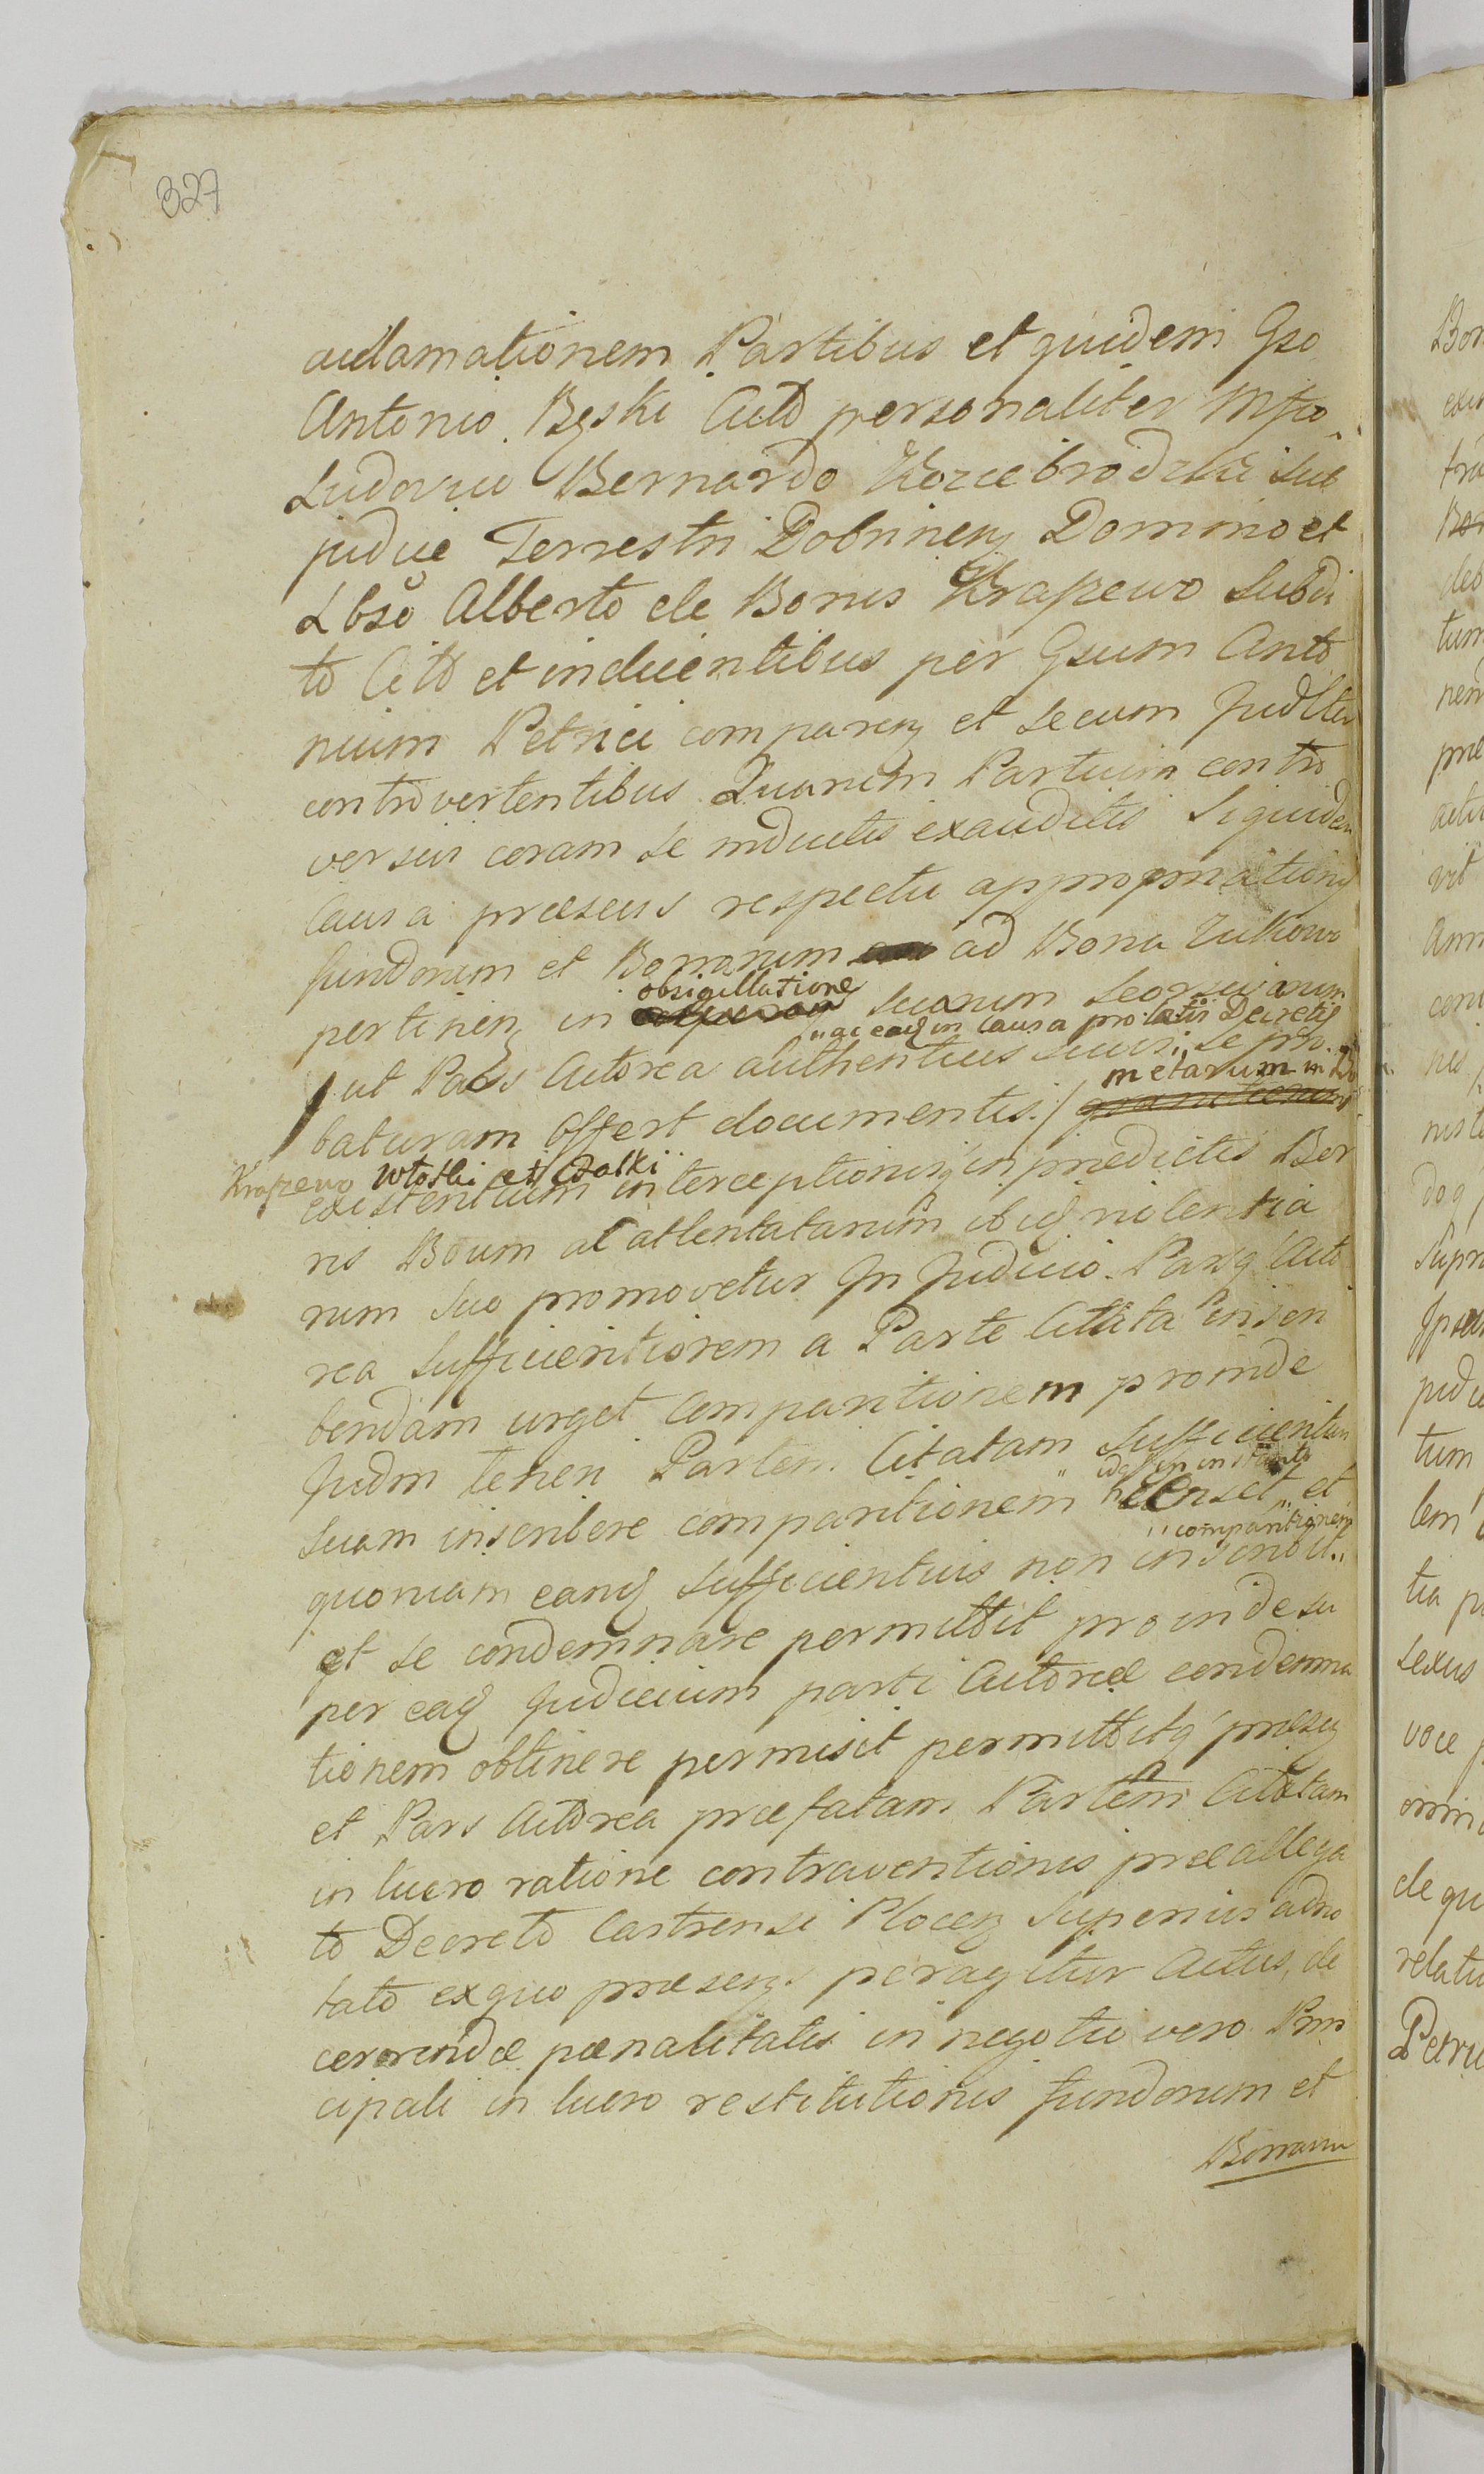 327
acclamationem Partibus et quidem Gso
Antonio Bęski Acto personaliter Mfco
Ludovico Bernardo Koziebrodzki Sub
judice Terrestri Dobrinenꝫ Domino et
Lbso Alberto de Bonis Krapewo Subdi
to Citto et inducentibus per Gsum Anto
nium Petrici comparenꝫ et secum Judlter
controvertentibus Quarum Partium contro
versiis coram se inductis exauditis Siquidem
Causa præsens respectu appropriationis
fundorum et Bonorum ad Bona Zulkowo
pertinenꝫ in obsigillatione suorum seorsivorum
„ac eaꝗ in Causa prolatis Decretis
/ut Pars Actorea authenticis suis, se pro
baturam offert documentis:/ metarum in Bo
Krapewo Włoski et Dalki
existentium interceptionisq in prædictis Bor
ris Boum ac attentatarum ibiꝗ violentia
rum suo promovetur In Judicio. Parsq Acto
rea Sufficientiorem a Parte Cittata inscri
bendam urget Comparitionem proinde
Judm teneri Partem Citatam Sufficientem
suam inscribere comparitionem recenset „ et
quoniam eanꝗ Sufficientius non inscribit „
„comparitionem
et se condemnare permittit proinde su
per eaꝗ Judicium parti Actoreæ condemna
tionem obtinere permisit permittitq præsenꝫ
et Pars Actorea præfatam Partem Citatam
in lucro ratione contraventionis præallega
to Decreto Castrensi Plocenꝫ Superius adno
tato exquo præsenꝫ peragitur Actus, de
cernendæ pœnalitatis in negotio vero Prin
cipali in lucro restitutionis fundorum et
Bonorum